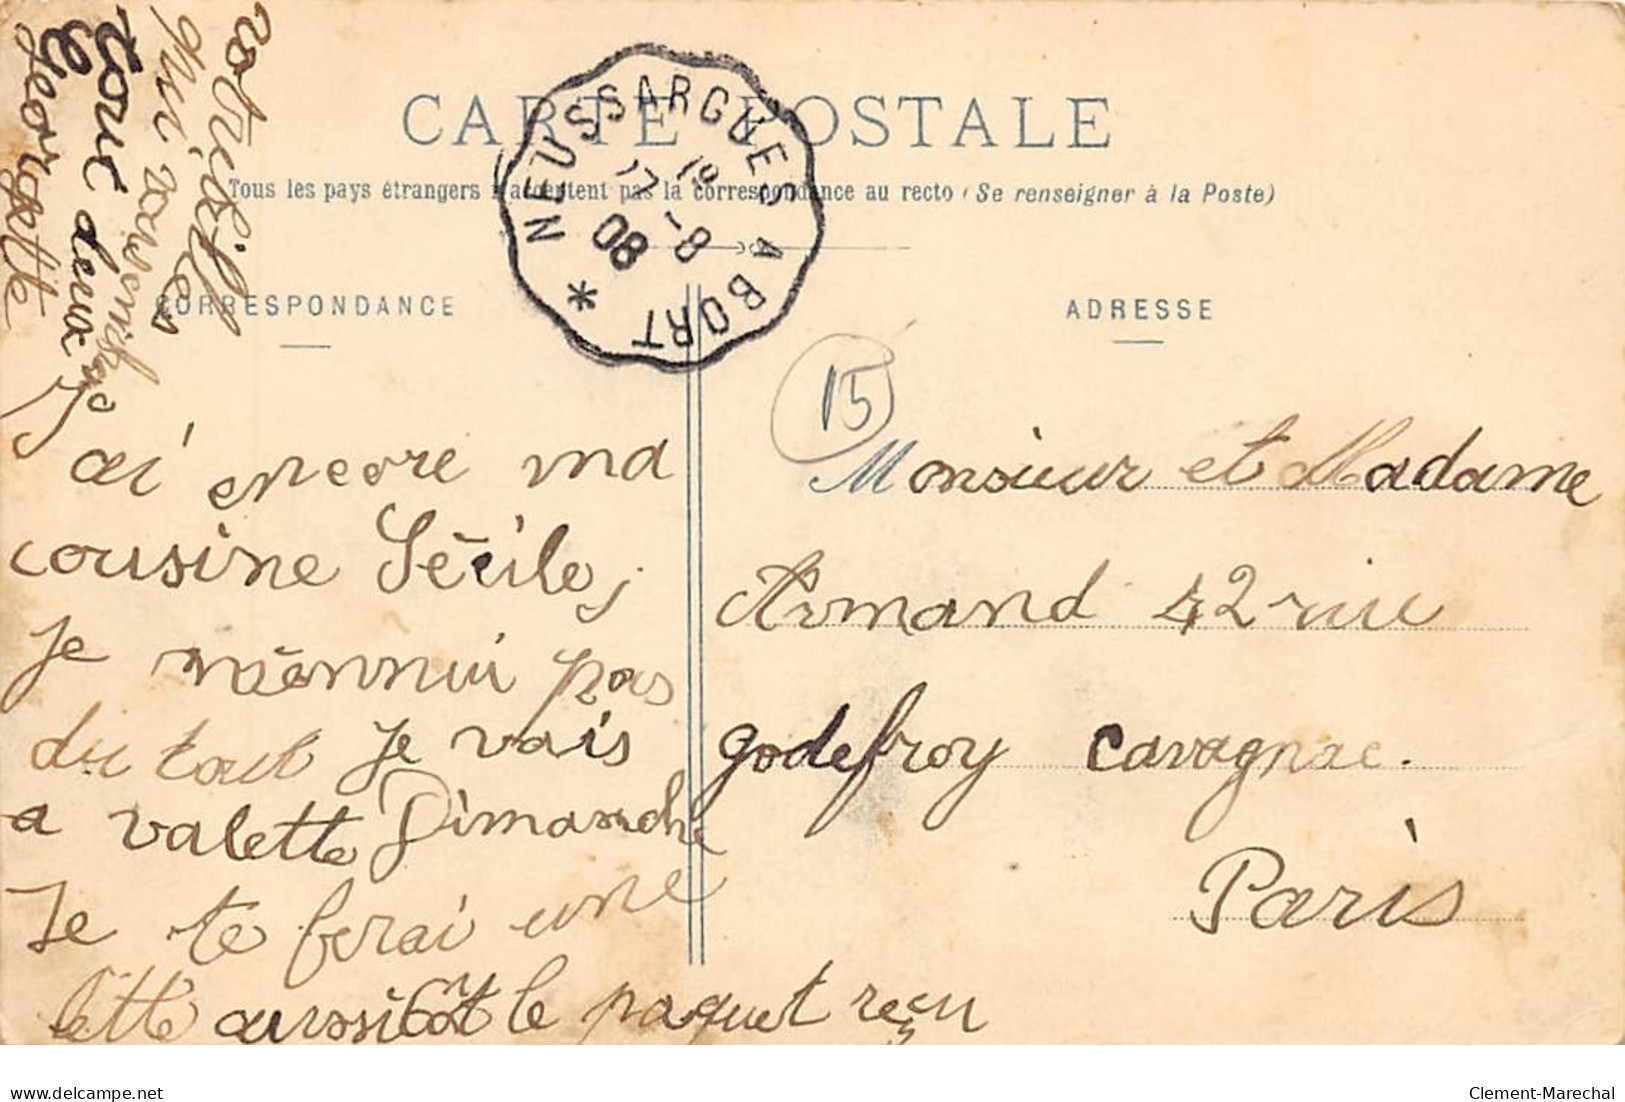 CARTE POSTALE
Tous les pays étrangers n'acceptent pas la correspondance au recto (Se renseigner à la Poste)
CORRESPONDANCE
ADRESSE
NEUSSARGUES A BORT *
17 - 8
08
15
J'ai encore ma
cousine Sécile,
je m'ennui pas
du tout Je vais
a valette Dimanche
Je te ferai une
lette aussitot le paquet reçu
votre fille
qui vous
tous deux
Georgette
Monsieur et Madame
Armand 42 rue
godefroy Cavagnac.
Paris
delcampe.net
Clement-Marechal